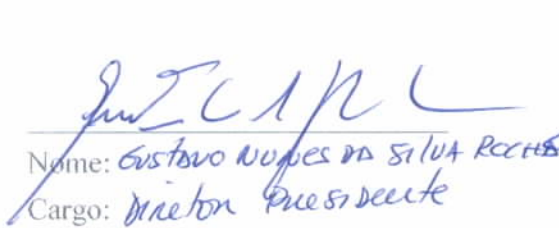 Nome: GUSTAVO NUNES DA SILVA ROCHA
Cargo: Diretor Presidente